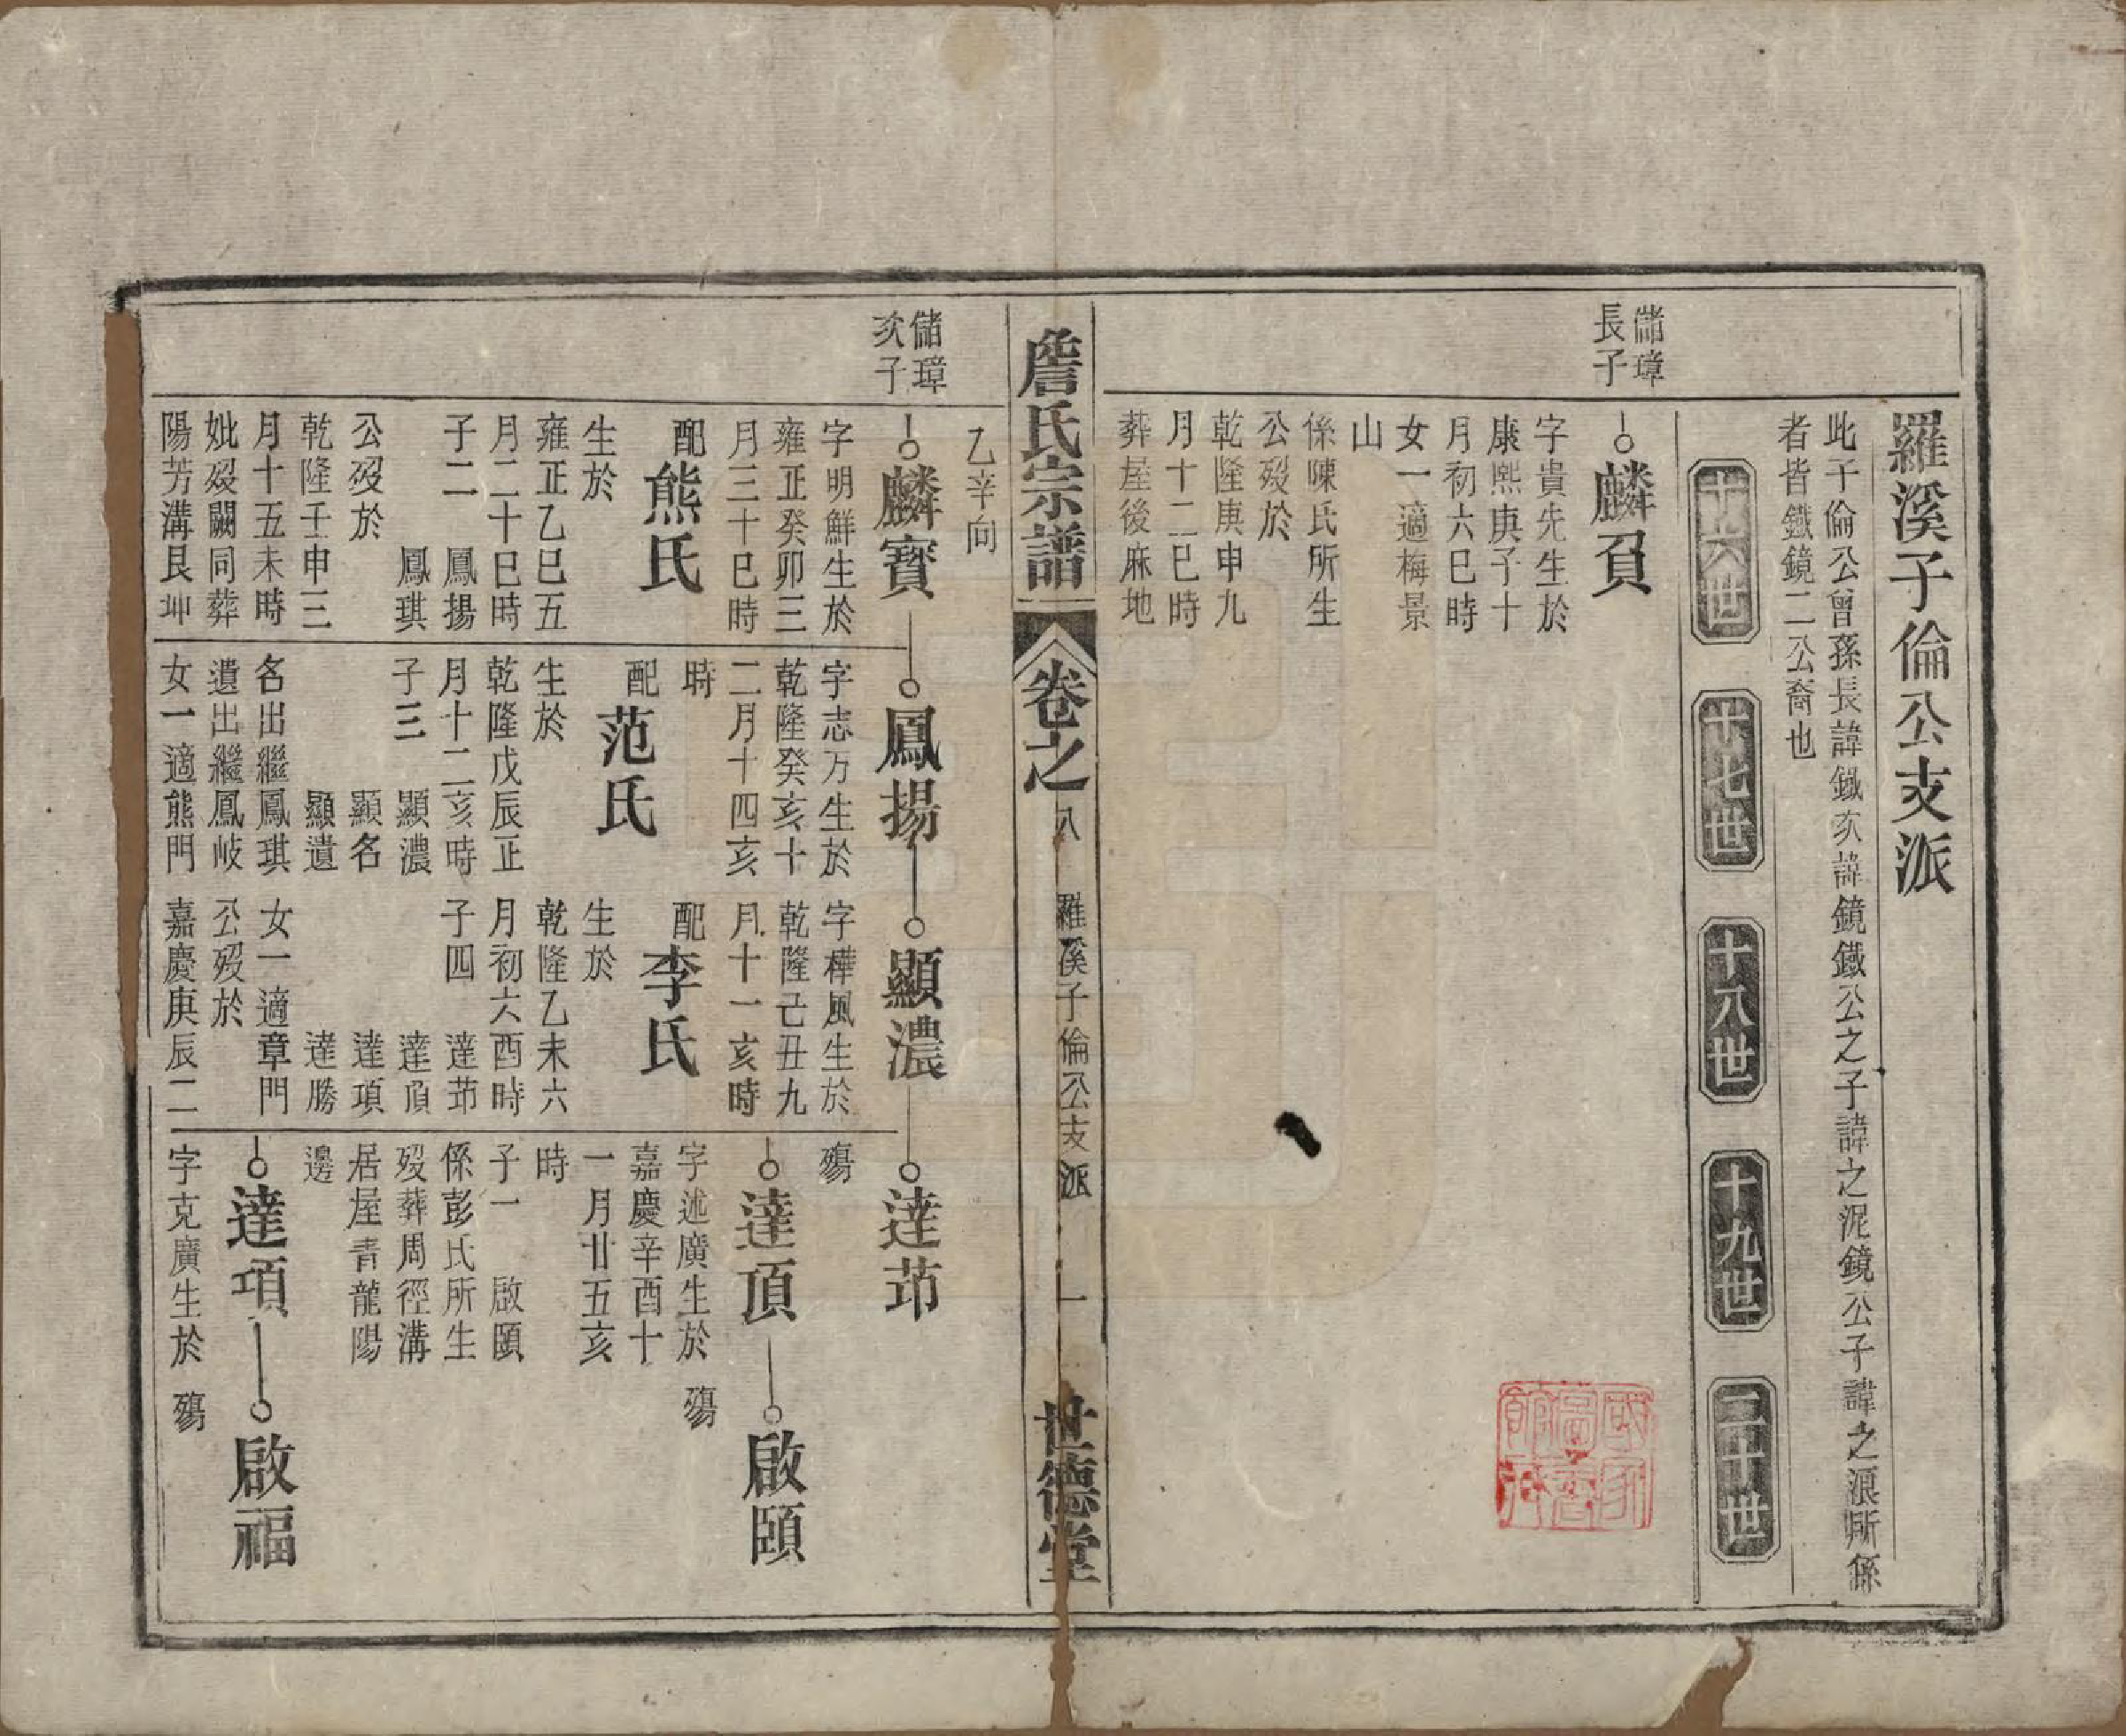 羅溪子倫公支派
此子倫公曾孫長諱鐵次諱鏡鐵公之子諱之泥鏡公子諱之浪所係
者皆鐵鏡二公裔也
十六世
十七世
十八世
十九世
二十世
儲璋
長子
麟召
字貴先生於
康熙庚子十
月初六巳時
女一適梅景
山
係陳氏所生
公歿於
乾隆庚申九
月十二巳時
葬屋後麻地
詹氏宗譜
卷之
八
羅溪子倫公支派
一
世德堂
乙辛向
儲璋
次子
麟寶
字明鮮生於
雍正癸卯三
月三十巳時
配熊氏
生於
雍正乙巳五
月二十巳時
子二 鳳揚
鳳琪
公歿於
乾隆壬申三
月十五未時
妣歿闕同葬
陽芳溝艮坤
鳳揚
字志万生於
乾隆癸亥十
二月十四亥
時
配范氏
生於
乾隆戊辰正
月十二亥時
子三 顯濃
顯名
顯遺
名出繼鳳琪
遺出繼鳳岐
女一適熊門
顯濃
字樺風生於
乾隆己丑九
月十一亥時
配李氏
生於
乾隆乙未六
月初六酉時
子四 達茆
達頂
達項
達勝
女一適章門
公歿於
嘉慶庚辰二
達茆
殤
達頂
字述廣生於
嘉慶辛酉十
一月廿五亥
時
子一 啟頤
係彭氏所生
歿葬周徑溝
居屋青龍陽
邊
達項
字克廣生於
啟頤
殤
啟福
殤